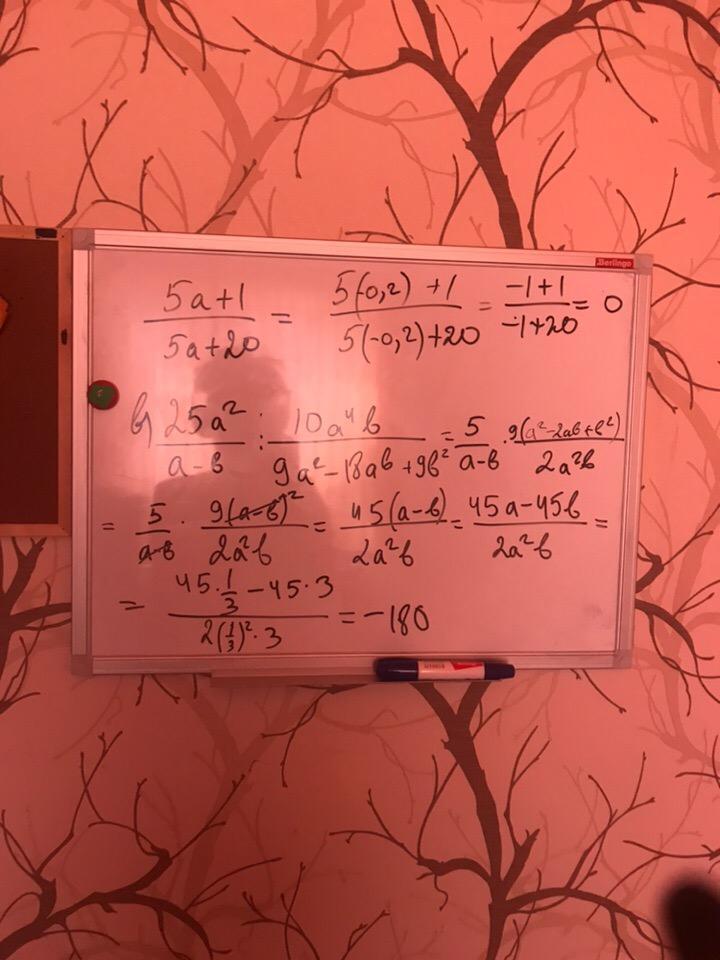 Berlingo
(5a+1)/(5a+20) = (5(-0,2)+1)/(5(-0,2)+20) = (-1+1)/(-1+20) = 0
b) 25a²/(a-b) : 10a⁴b/(9a²-18ab+9b²) = 5/(a-b) · 9(a²-2ab+b²)/(2a²b)
= 5/(a-b) · 9(a-b)²/(2a²b) = 45(a-b)/(2a²b) = (45a-45b)/(2a²b) =
= (45·1/3-45·3)/(2(1/3)²·3) = -180